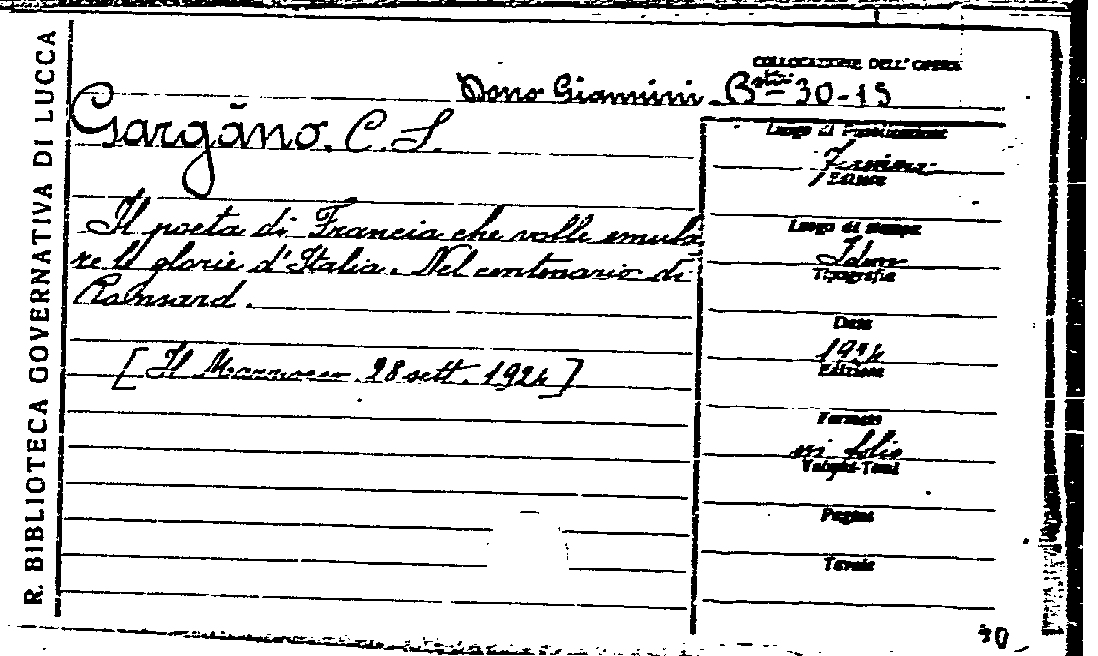 R. BIBLIOTECA GOVERNATIVA DI LUCCA
COLLOCAZIONE DELL'OPERA
Dono Giannini. B 30-15
Gargáno. C. S.
Il poeta di Francia che volle emula
re le glorie d'Italia. Nel centenario di
Ronsard.
[Il Marzocco 28 sett. 1924]
Luogo di Pubblicazione
Firenze
Luogo di Stampa
Idem
Tipografia
Data
1924
Edizione
Formato
in folio
Volumi-Tomi
Pagine
Tavole